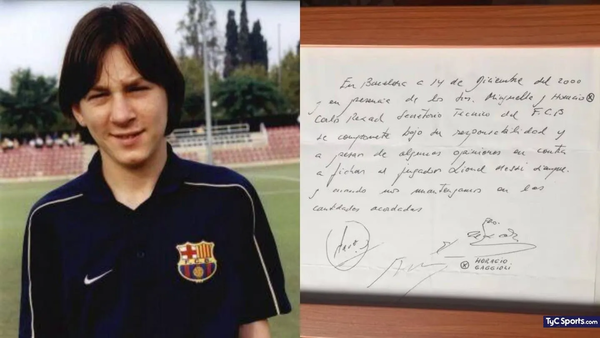 En Barcelona a 14 de Diciembre del 2000
y en presencia de los Srs. Minguella y Horacio
Carles Rexach Secretario Tecnico del F.C.B
se compromete bajo su responsabilidad y
a pesar de algunas opiniones en contra
a fichar el jugador Lionel Messi siempre
y cuando nos mantengamos en las
cantidades acordadas
HORACIO
GAGGIOLI
F.C.B
TyCSports.com